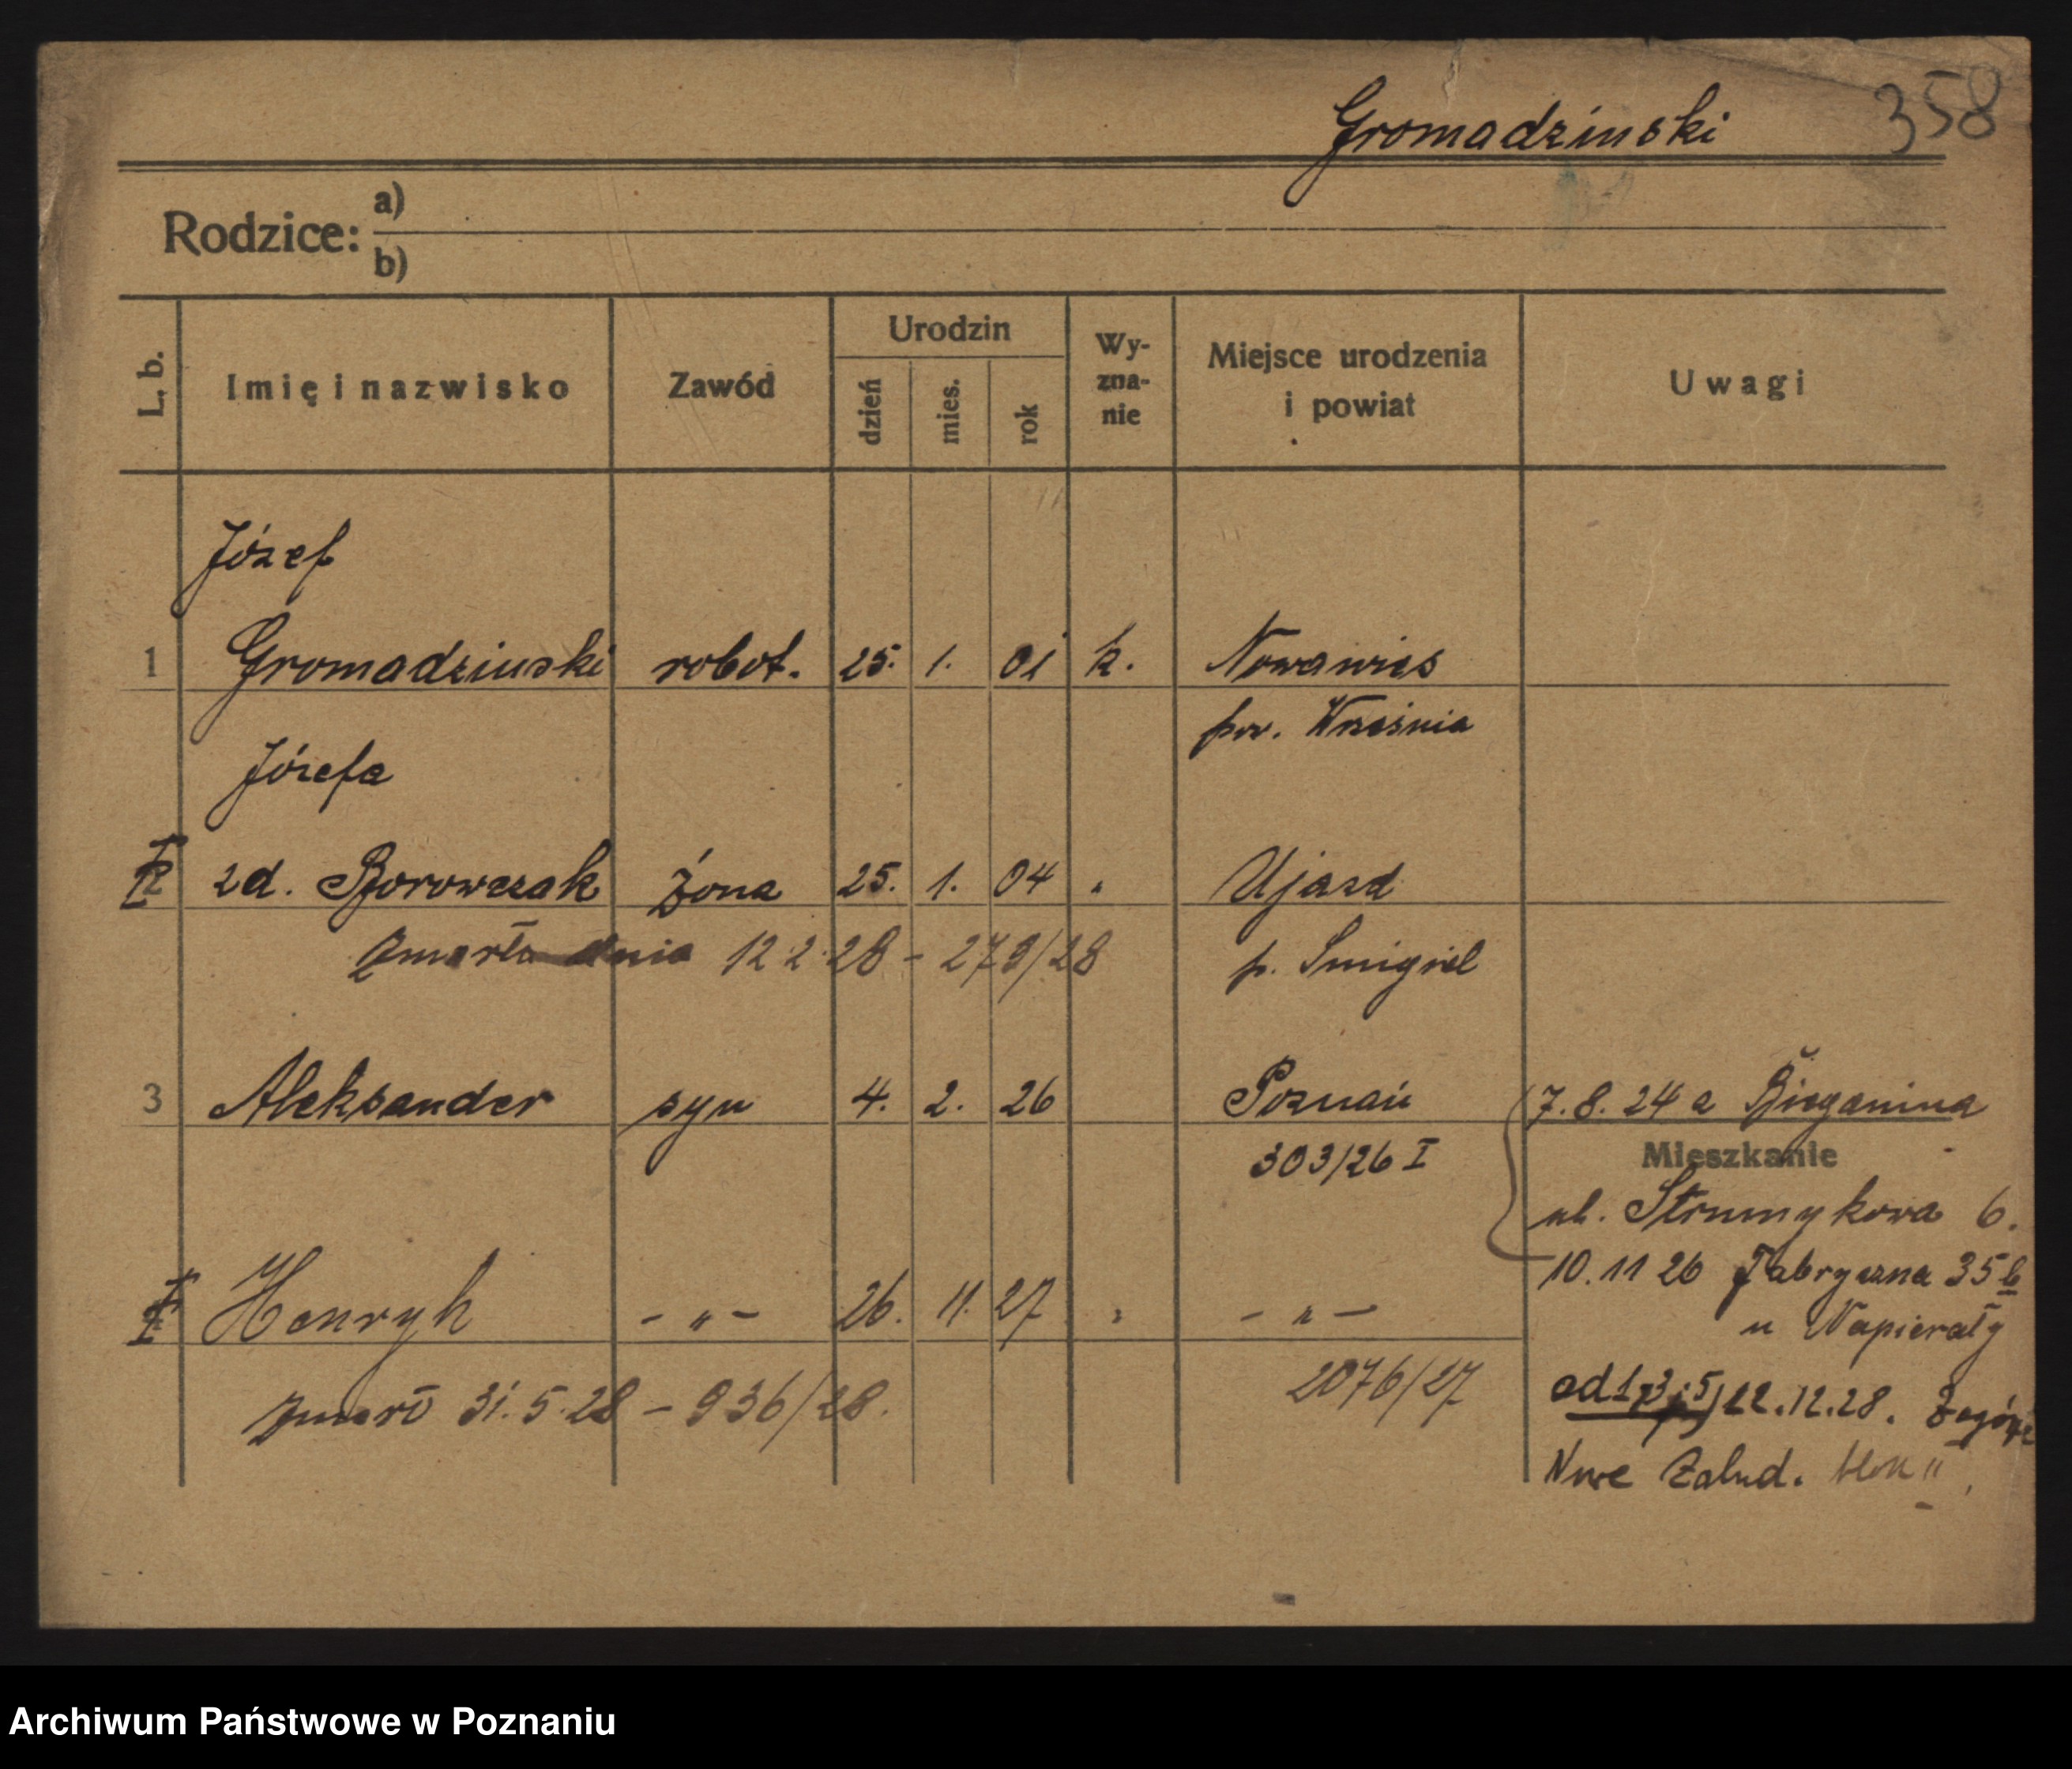 Gromadzinski 358
Rodzice: a)
b)
L. b. Imię i nazwisko Zawód Urodzin dzień mies. rok Wyznanie Miejsce urodzenia i powiat Uwagi
Józef
1 Gromadzinski robot. 25. 1. 01 k. Nowawies
pow. Września
Józefa
2 zd. Borowczak żona 25. 1. 04 " Ujazd
zmarła dnia 12 2 28 - 279/28 p. Smigiel
3 Aleksander syn 4. 2. 26 Poznań 7. 8. 24 a Bieganina
303/26 I Mieszkanie
ul. Strumykowa 6.
10. 11 26 Fabryczna 35 b
4 Henryk - " - 26. 11. 27 " - " -
u Napierały
2076/27
zmarł 31. 5. 28 - 936/28.
od 1, 3, 5, 22. 12. 28.
Nowe Zabud. blok
Archiwum Państwowe w Poznaniu